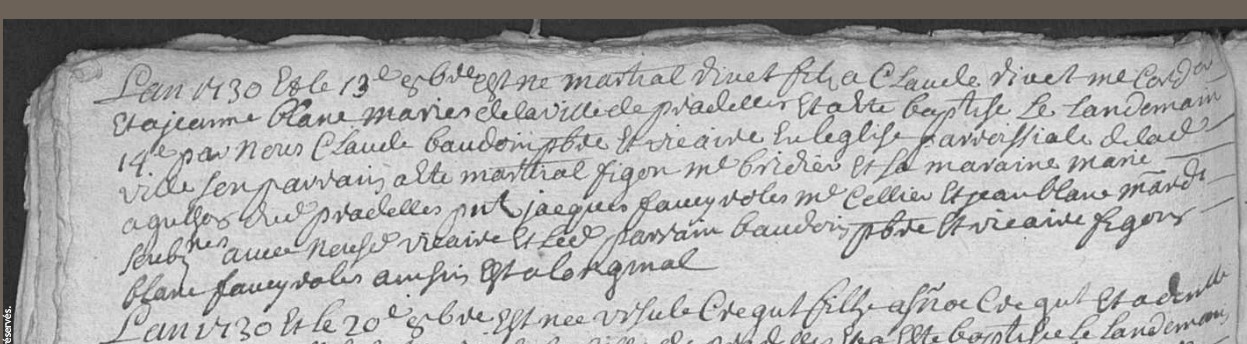 L'an 1730 Et le 13e 8bre Est ne martial divet filz a Claude divet me Cordor
Et a jeanne blanc maries de la ville de pradelles Et a Ete baptise Le Landemain
14e par Nous Claude baudoin pbre Et vicaire En leglise parroissiale de lad
ville son parrain a Ete martial figon me bridier Et sa maraine marie
dud pradelles jacques faucyroles me Cellier Et jean blanc
avec Nousd vicaire Et led parrain baudoin pbre Et vicaire figon
blanc faucyroles ainsin Est a lorginal
L'an 1730 Et le 20e 8bre Est nee ursule Cregut fille a Cregut Et a
Ete baptisee Le Landemain
éservés.